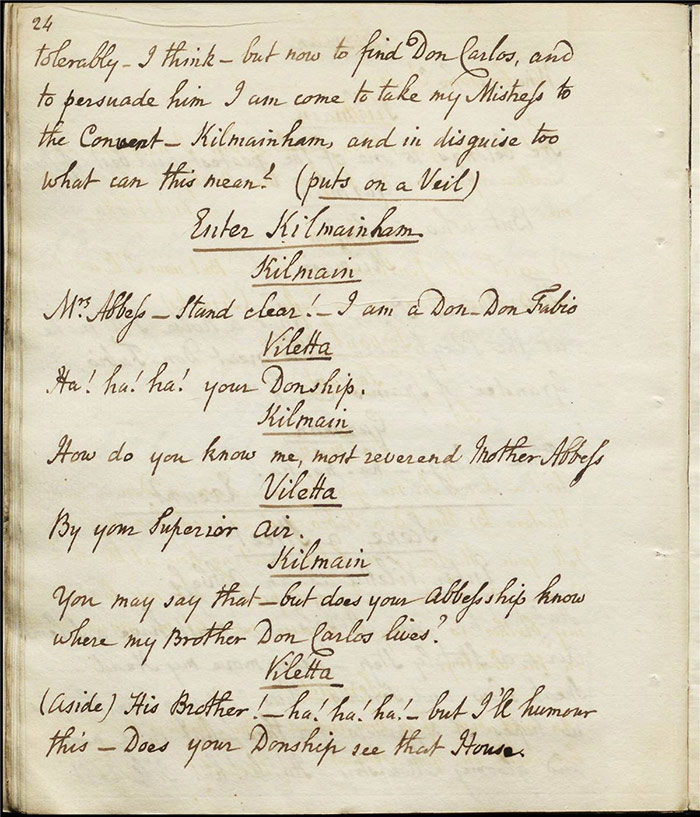 24
tolerably – I think – but now to find Don Carlos, and
to persuade him I am come to take my Mistress to
the Convent – Kilmainham, and in disguise too
what can this mean? (puts on a Veil)
Enter Kilmainham.
Kilmain
Mrs Abbess – Stand clear! – I am a Don – Don Fabio
Viletta
Ha! ha! ha! your Donship.
Kilmain
How do you know me, most reverend Mother Abbess
Viletta
By your Superior air.
Kilmain
You may say that – but does your Abbessship know
where my Brother Don Carlos lives?
Viletta
(aside) His Brother! – ha! ha! ha! – but I'll humour
this – Does your Donship see that House.